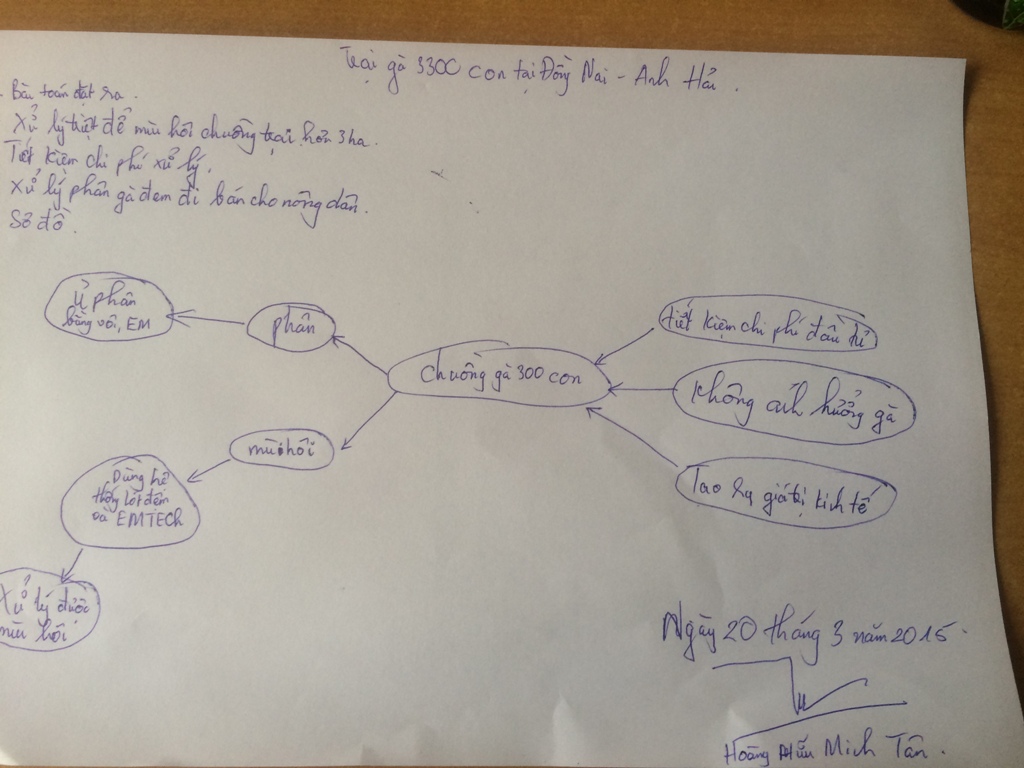 Trại gà 3300 con tại Đồng Nai - Anh Hải.
- Bài toán đặt ra.
Xử lý triệt để mùi hôi chuồng trại hơn 3ha.
Tiết kiệm chi phí xử lý.
Xử lý phân gà đem đi bán cho nông dân.
Sơ đồ.
Ủ phân
bằng vôi, EM
phân
Chuồng gà 300 con
tiết kiệm chi phí đầu tư
Không ảnh hưởng gà
Tạo ra giá trị kinh tế
mùi hôi
Dùng hệ
thống lót đệm
và EMTECH
Xử lý được
mùi hôi
Ngày 20 tháng 3 năm 2015.
Hoàng Minh Tân.